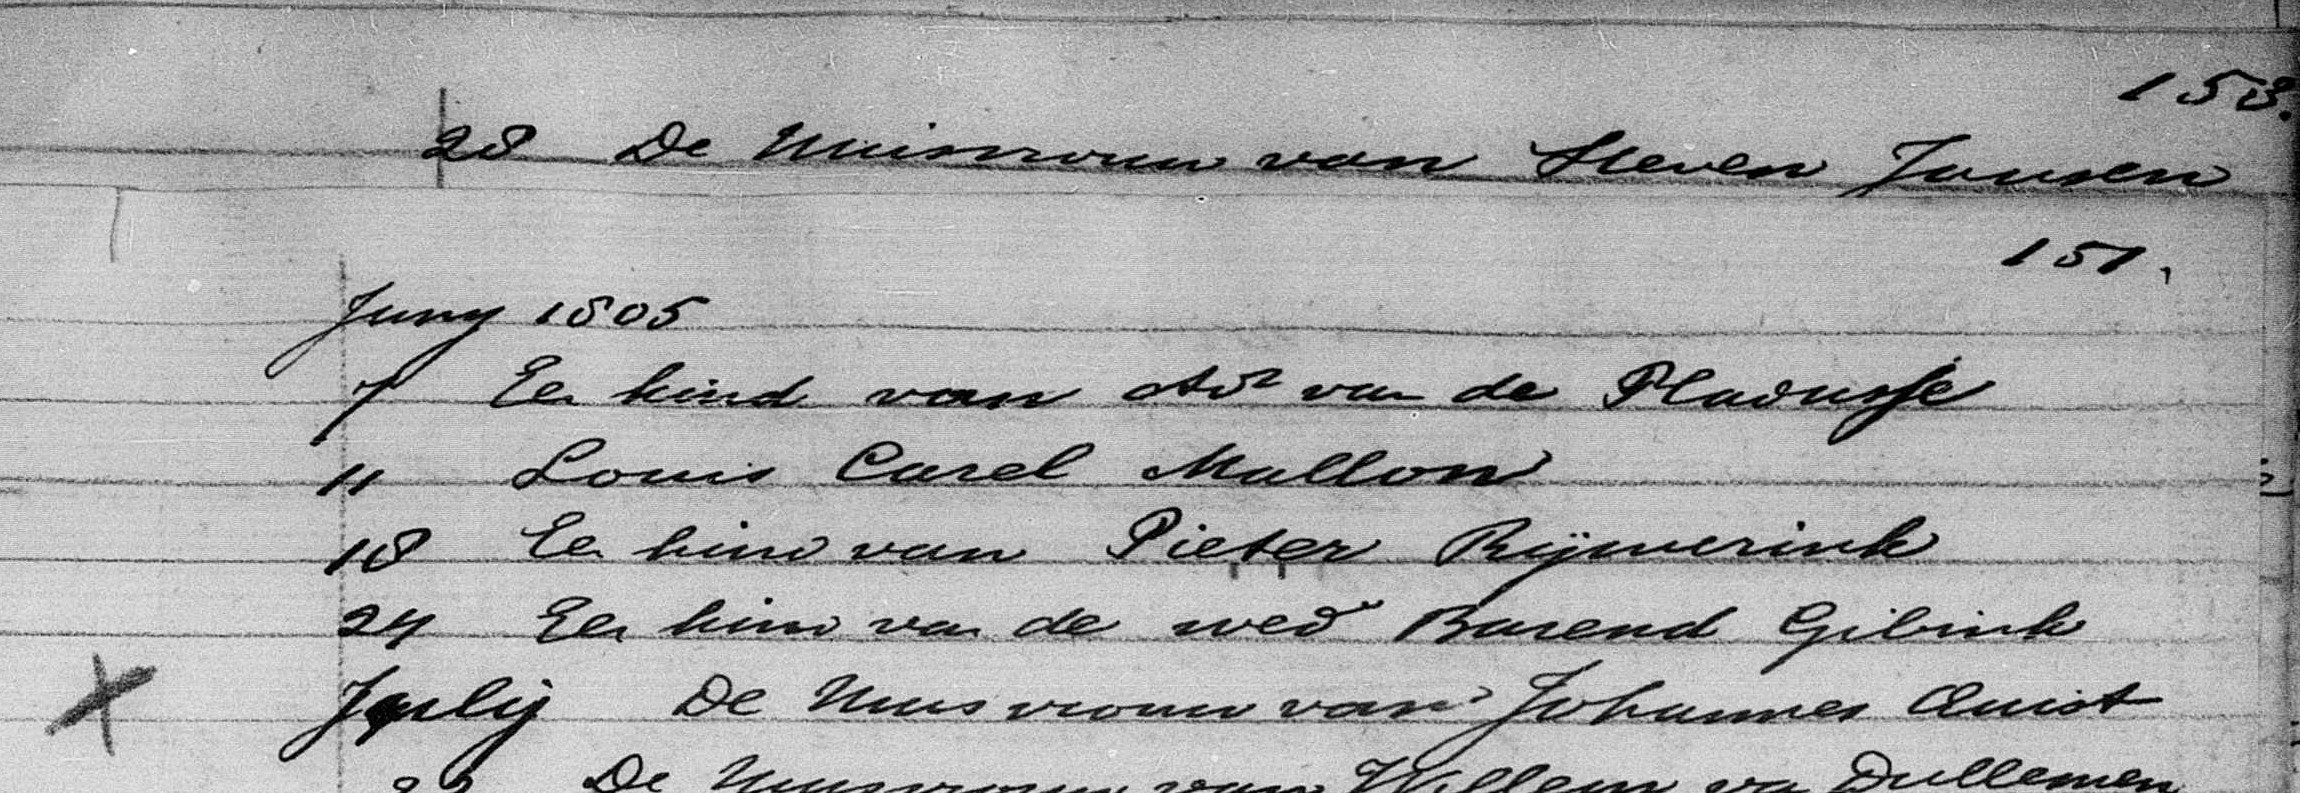 153.
28 De Huisvrouw van Steven Jansen
151.
Juny 1805
7 Een kind van Adr van de
11 Louis Carel Mallon
18 Een kind van Pieter Rijmerink
24 Een kind van de wed Barend Gibink
July De Huisvrouw van Johannes Quist
22 De Huisvrouw van Willem van Dullemen